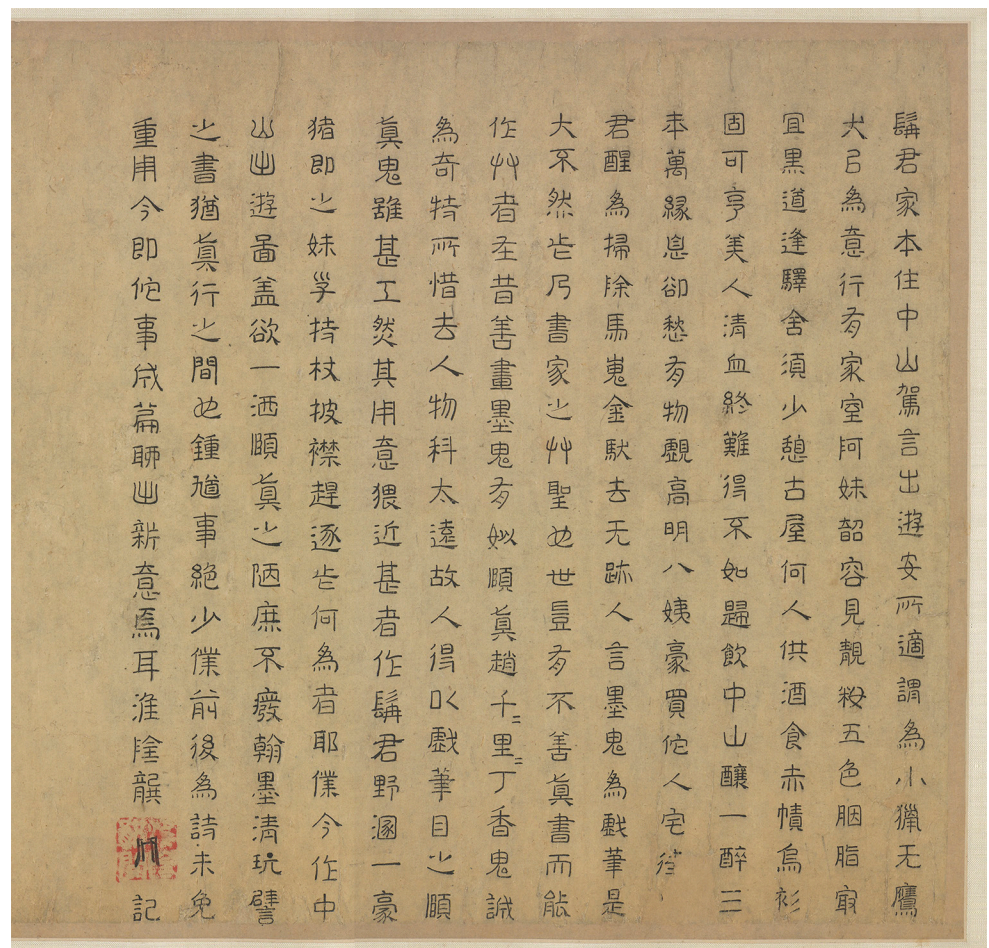 髯君家本住中山駕言出遊安所適謂為小獵无鷹
犬㠯為意行有家室阿妹韶容見靚粧五色胭脂㝡
宜黑道逢驛舍須少憩古屋何人供酒食赤幘烏衫
固可亨美人清血終難得不如歸飲中山釀一醉三
年萬緣息卻愁有物覷高明八姨豪買佗人宅待
君醒為掃除馬嵬金馱去无跡人言墨鬼為戲筆是
大不然此乃書家之艸聖也世豈有不善真書而能
作艸者在昔善畫墨鬼有姒頤真趙千〻里〻丁香鬼誠
為奇特所惜去人物科太遠故人得以戲筆目之頤
真鬼雖甚工然其用意猥近甚者作髯君野溷一豪
猪即之妹子持杖披襟趕逐此何為者耶僕今作中
山出遊啚蓋欲一洒頤真之陋庶不廢翰墨清玩譬
之書猶真行之間也鍾馗事絕少僕前後為詩未免
重用今即佗事成篇聊出新意焉耳淮陰龔記